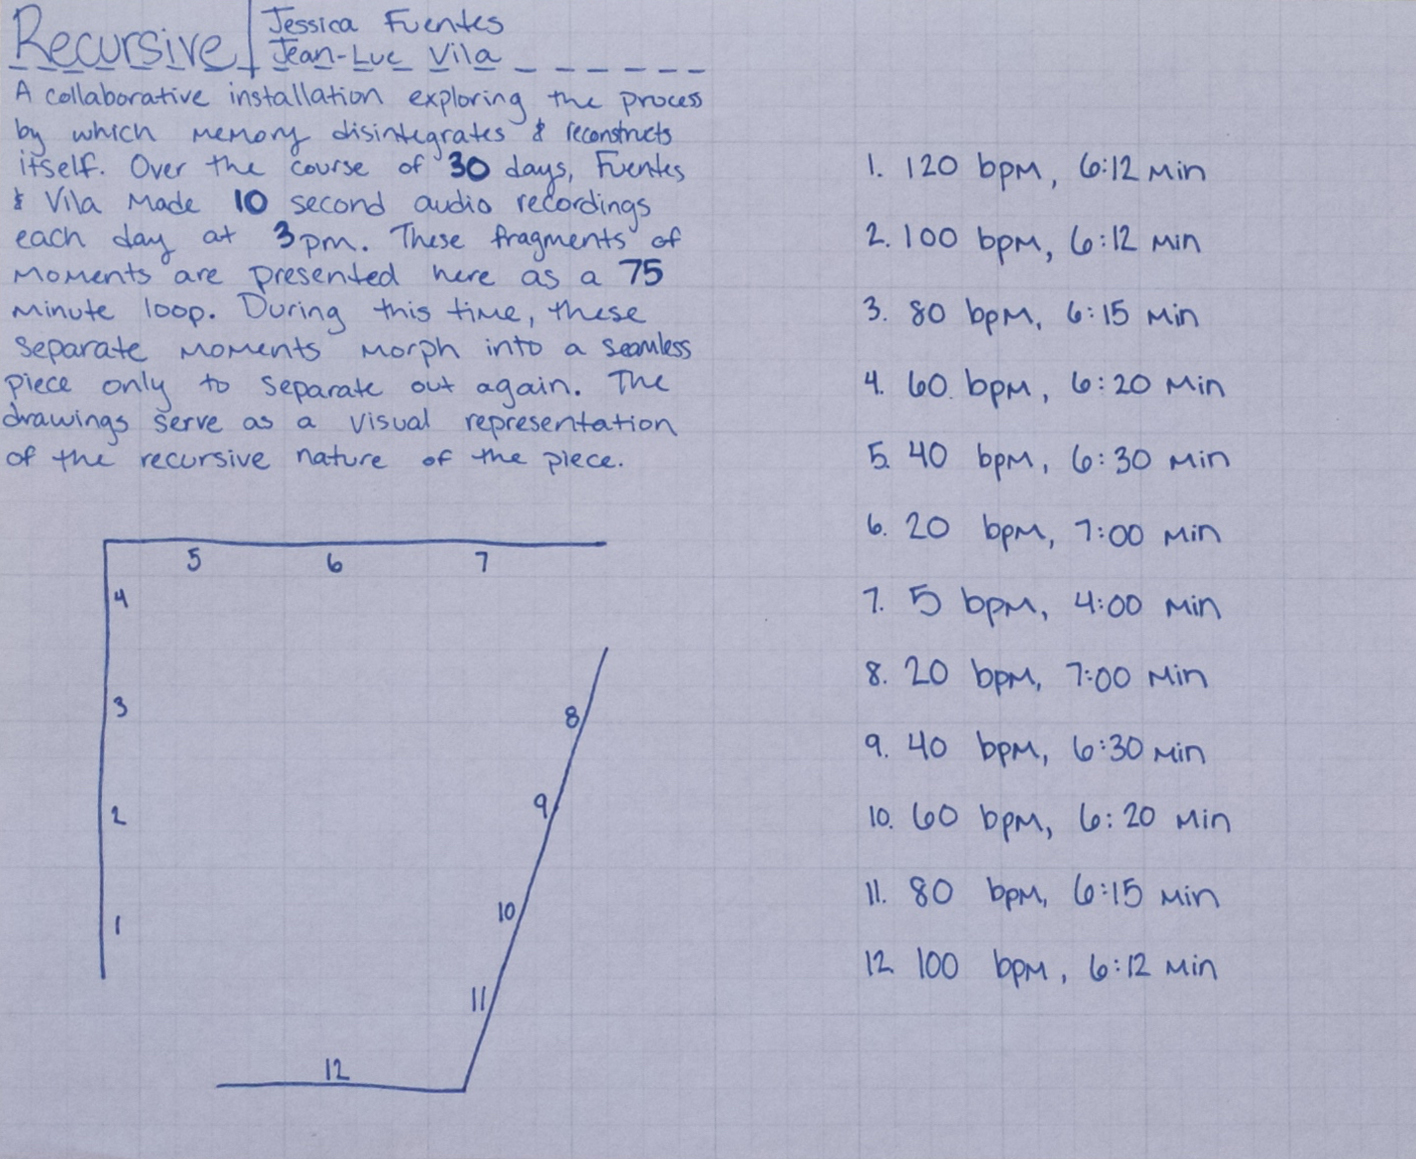 Recursive
Jessica Fuentes
Jean-Luc Vila
A collaborative installation exploring the process
by which memory disintegrates & reconstructs
itself. Over the course of 30 days, Fuentes
& Vila made 10 second audio recordings
each day at 3pm. These fragments of
moments are presented here as a 75
minute loop. During this time, these
separate moments morph into a seamless
piece only to separate out again. The
drawings serve as a visual representation
of the recursive nature of the piece.
5 6 7
4
3
2
1
8
9
10
11
12
1. 120 bpm, 6:12 min
2. 100 bpm, 6:12 min
3. 80 bpm, 6:15 min
4. 60 bpm, 6:20 min
5. 40 bpm, 6:30 min
6. 20 bpm, 7:00 min
7. 5 bpm, 4:00 min
8. 20 bpm, 7:00 min
9. 40 bpm, 6:30 min
10. 60 bpm, 6:20 min
11. 80 bpm, 6:15 min
12. 100 bpm, 6:12 min